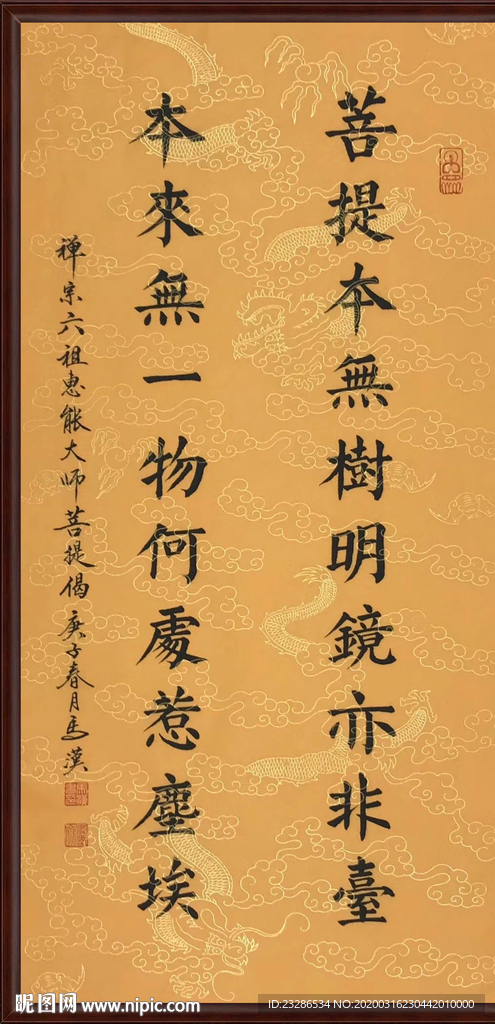 菩提本無樹明鏡亦非臺
本來無一物何處惹塵埃
禅宗六祖惠能大师菩提偈 庚子春月馬漢
昵图网 www.nipic.com
ID:23286534 NO:20200316230442010000